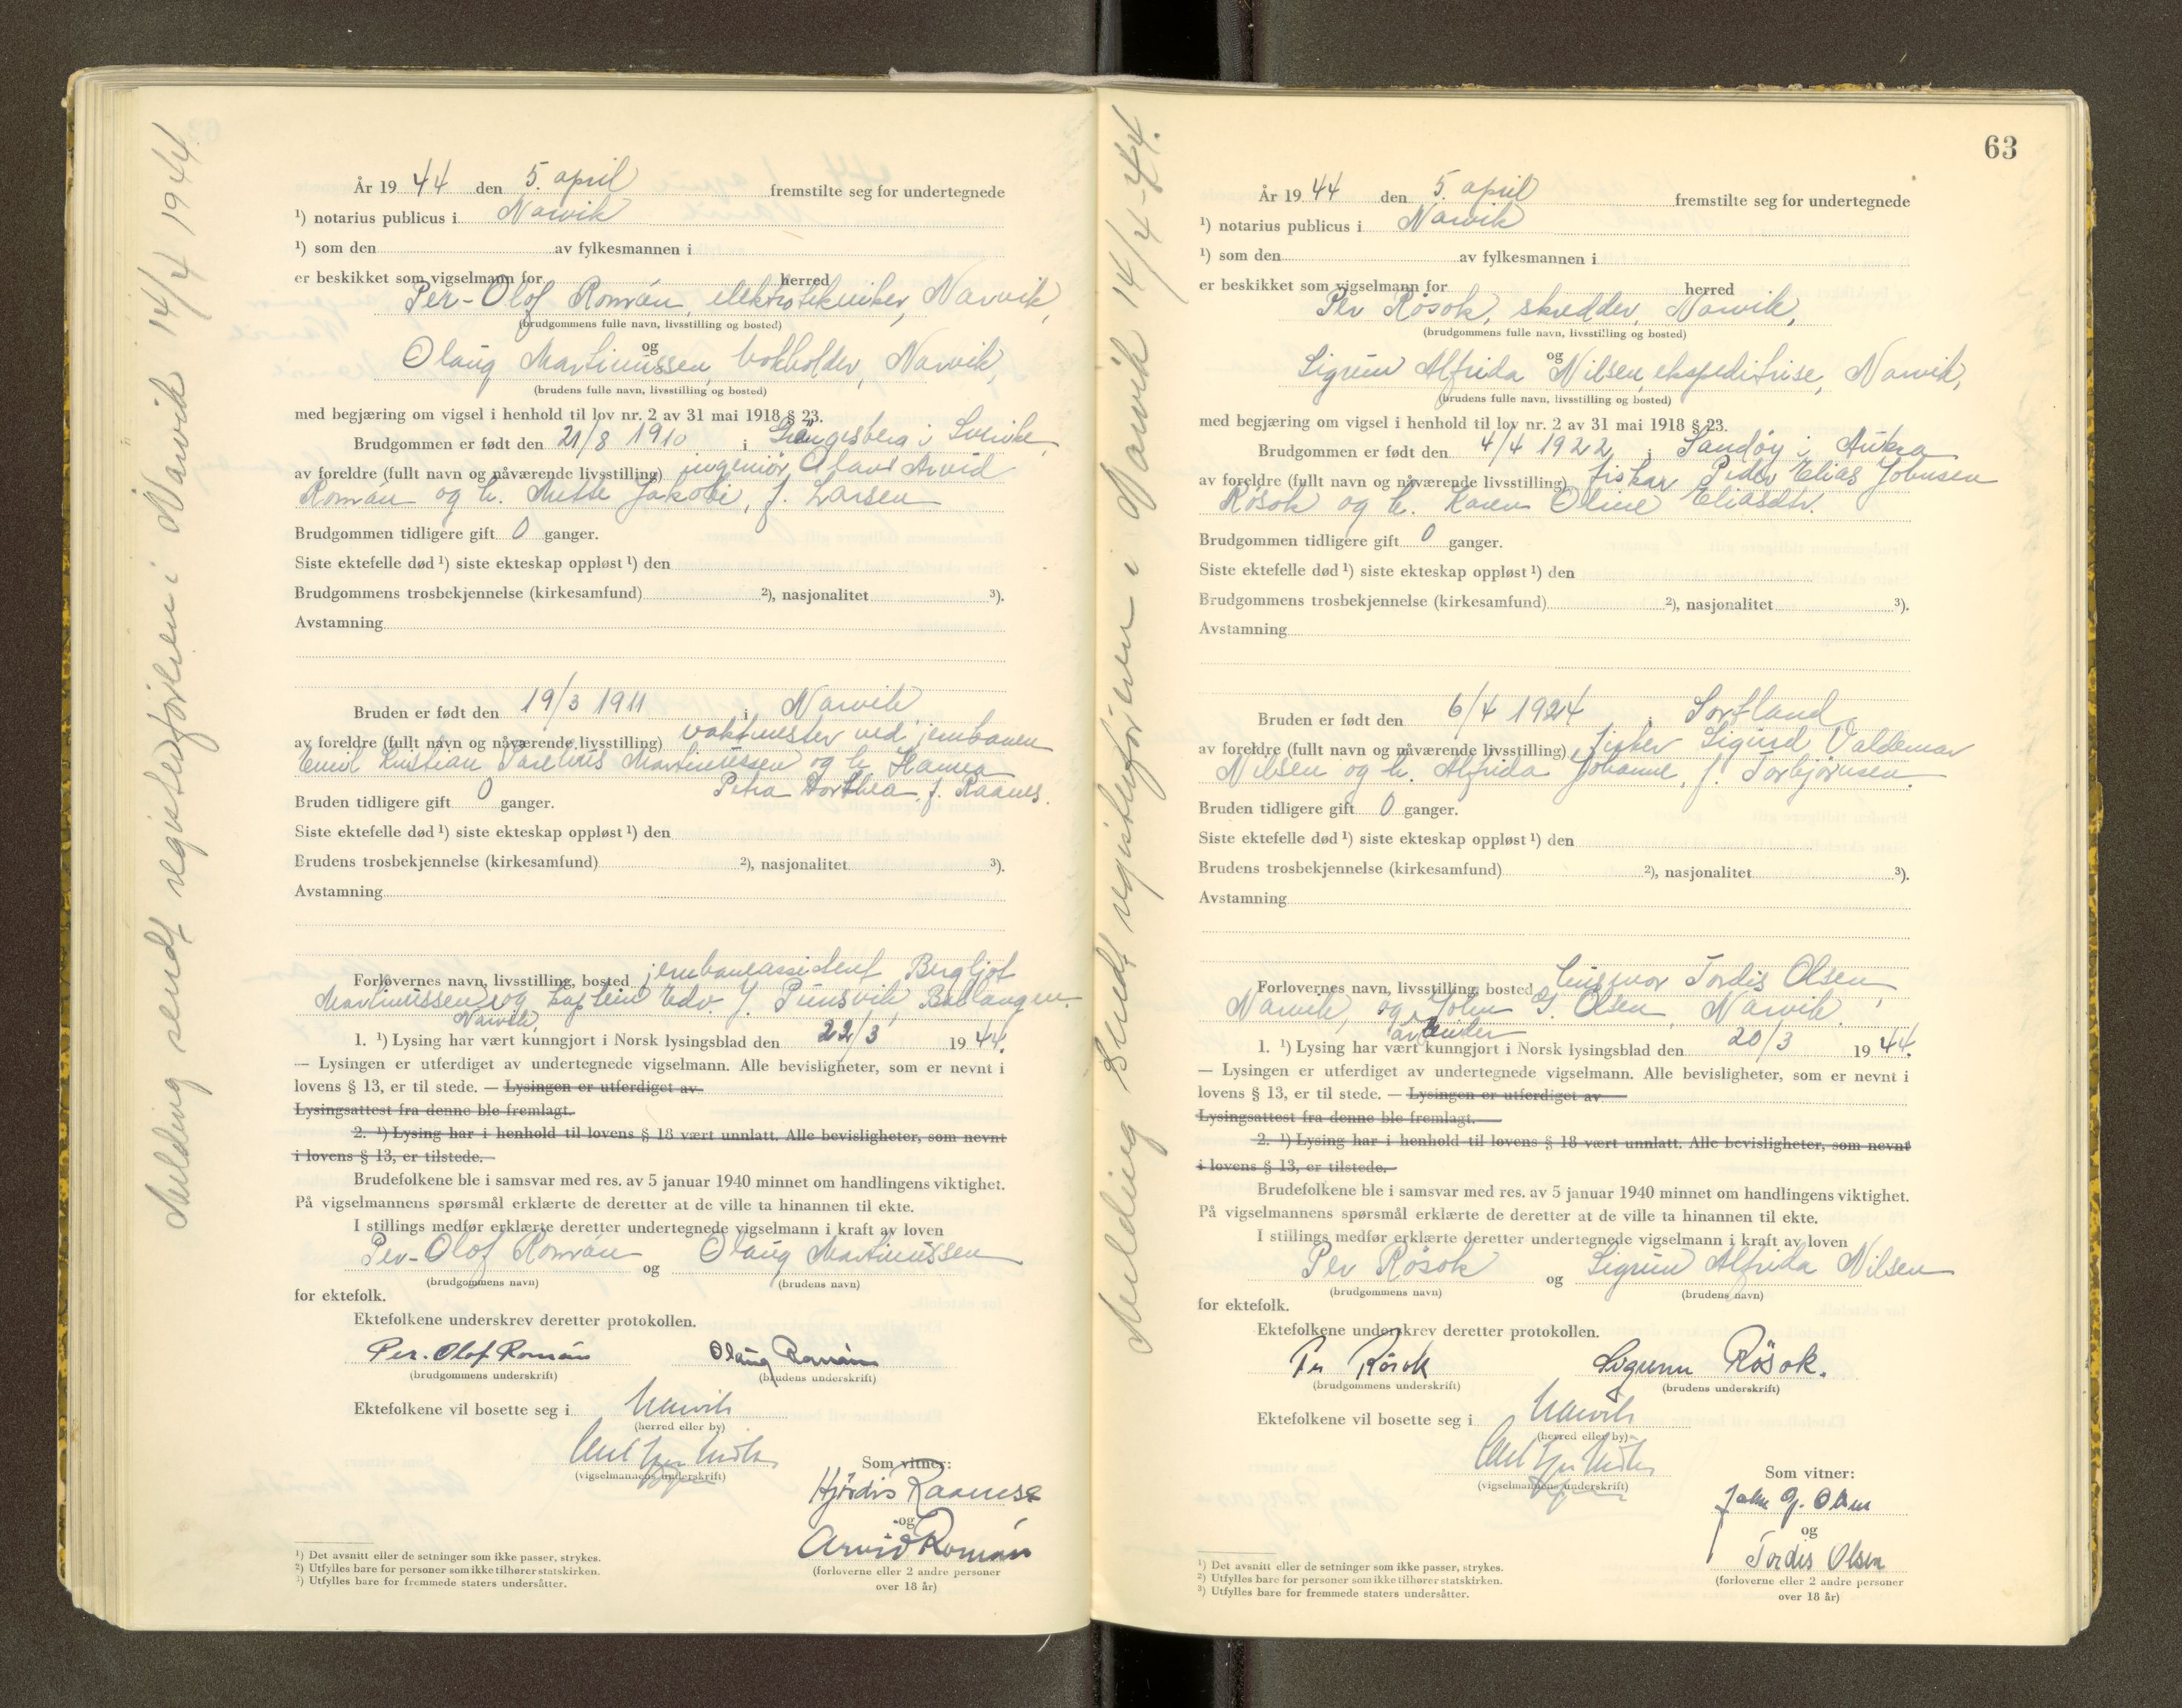 Melding sendt registerføreren i Narvik 14/4 1944.
År 1944 den 5. april fremstilte seg for undertegnede
¹) notarius publicus i Narvik
¹) som den av fylkesmannen i
er beskikket som vigselmann for herred
Per-Olof Román, elektrotekniker, Narvik,
(brudgommens fulle navn, livsstilling og bosted)
og
Olaug Martinussen, bokholder, Narvik,
(brudens fulle navn, livsstilling og bosted)
med begjæring om vigsel i henhold til lov nr. 2 av 31 mai 1918 § 23.
Brudgommen er født den 21/8 1910 i Grängesberg i Sverike,
av foreldre (fullt navn og nåværende livsstilling) ingeniör Olaus Arvid
Román og h. Mette Jakobi, f. Larsen
Brudgommen tidligere gift 0 ganger.
Siste ektefelle død ¹) siste ekteskap oppløst ¹) den
Brudgommens trosbekjennelse (kirkesamfund) ²), nasjonalitet ³).
Avstamning
Bruden er født den 19/3 1911 i Narvik
av foreldre (fullt navn og nåværende livsstilling) vaktmester ved jernbanen
Emil Kristian Parelius Martinussen og h. Hanna
Petra Dorthea, f. Raanes.
Bruden tidligere gift 0 ganger.
Siste ektefelle død ¹) siste ekteskap oppløst ¹) den
Brudens trosbekjennelse (kirkesamfund) ²), nasjonalitet ³).
Avstamning
Forlovernes navn, livsstilling, bosted jernbaneassistent Bergljot
Martinussen, og kaptein Edv. J. Punsvik, Ballangen.
Narvik,
1. ¹) Lysing har vært kunngjort i Norsk lysingsblad den 22/3 1944.
— Lysingen er utferdiget av undertegnede vigselmann. Alle bevisligheter, som er nevnt i
lovens § 13, er til stede. — Lysingen er utferdiget av
Lysingsattest fra denne ble fremlagt.
2. ¹) Lysing har i henhold til lovens § 18 vært unnlatt. Alle bevisligheter, som nevnt
i lovens § 13, er tilstede.
Brudefolkene ble i samsvar med res. av 5 januar 1940 minnet om handlingens viktighet.
På vigselmannens spørsmål erklærte de deretter at de ville ta hinannen til ekte.
I stillings medfør erklærte deretter undertegnede vigselmann i kraft av loven
Per-Olof Román og Olaug Martinussen
(brudgommens navn) (brudens navn)
for ektefolk.
Ektefolkene underskrev deretter protokollen.
Per-Olof Román Olaug Román
(brudgommens underskrift) (brudens underskrift)
Ektefolkene vil bosette seg i Narvik
(herred eller by)
(vigselmannens underskrift)
Som vitner:
Hjördis Raanes
og
Arvid Román
(forloverne eller 2 andre personer
over 18 år)
¹) Det avsnitt eller de setninger som ikke passer, strykes.
²) Utfylles bare for personer som ikke tilhører statskirken.
³) Utfylles bare for fremmede staters undersåtter.
63
Melding sendt registerføreren i Narvik 14/4-44.
År 1944 den 5. april fremstilte seg for undertegnede
¹) notarius publicus i Narvik
¹) som den av fylkesmannen i
er beskikket som vigselmann for herred
Per Røsok, skredder, Narvik,
(brudgommens fulle navn, livsstilling og bosted)
og
Sigrun Alfrida Nilsen, ekspeditrise, Narvik,
(brudens fulle navn, livsstilling og bosted)
med begjæring om vigsel i henhold til lov nr. 2 av 31 mai 1918 § 23.
Brudgommen er født den 4/4 1922 i Sandøy i Aukra
av foreldre (fullt navn og nåværende livsstilling) fiskar Peder Elias Johnsen
Røsok og h. Karen Oline Eliasdtr.
Brudgommen tidligere gift 0 ganger.
Siste ektefelle død ¹) siste ekteskap oppløst ¹) den
Brudgommens trosbekjennelse (kirkesamfund) ²), nasjonalitet ³).
Avstamning
Bruden er født den 6/4 1924 i Sortland
av foreldre (fullt navn og nåværende livsstilling) fisker Sigurd Valdemar
Nilsen og h. Alfrida Johanne, f. Torbjörnsen.
Bruden tidligere gift 0 ganger.
Siste ektefelle død ¹) siste ekteskap oppløst ¹) den
Brudens trosbekjennelse (kirkesamfund) ²), nasjonalitet ³).
Avstamning
Forlovernes navn, livsstilling, bosted husmor Tordis Olsen,
Narvik, og John G. Olsen, Narvik.
arbeider
1. ¹) Lysing har vært kunngjort i Norsk lysingsblad den 20/3 1944.
— Lysingen er utferdiget av undertegnede vigselmann. Alle bevisligheter, som er nevnt i
lovens § 13, er til stede. — Lysingen er utferdiget av
Lysingsattest fra denne ble fremlagt.
2. ¹) Lysing har i henhold til lovens § 18 vært unnlatt. Alle bevisligheter, som nevnt
i lovens § 13, er tilstede.
Brudefolkene ble i samsvar med res. av 5 januar 1940 minnet om handlingens viktighet.
På vigselmannens spørsmål erklærte de deretter at de ville ta hinannen til ekte.
I stillings medfør erklærte deretter undertegnede vigselmann i kraft av loven
Per Røsok og Sigrun Alfrida Nilsen
(brudgommens navn) (brudens navn)
for ektefolk.
Ektefolkene underskrev deretter protokollen.
Per Røsok Sigrun Røsok.
(brudgommens underskrift) (brudens underskrift)
Ektefolkene vil bosette seg i Narvik
(herred eller by)
(vigselmannens underskrift)
Som vitner:
John G. Olsen
og
Tordis Olsen
(forloverne eller 2 andre personer
over 18 år)
¹) Det avsnitt eller de setninger som ikke passer, strykes.
²) Utfylles bare for personer som ikke tilhører statskirken.
³) Utfylles bare for fremmede staters undersåtter.